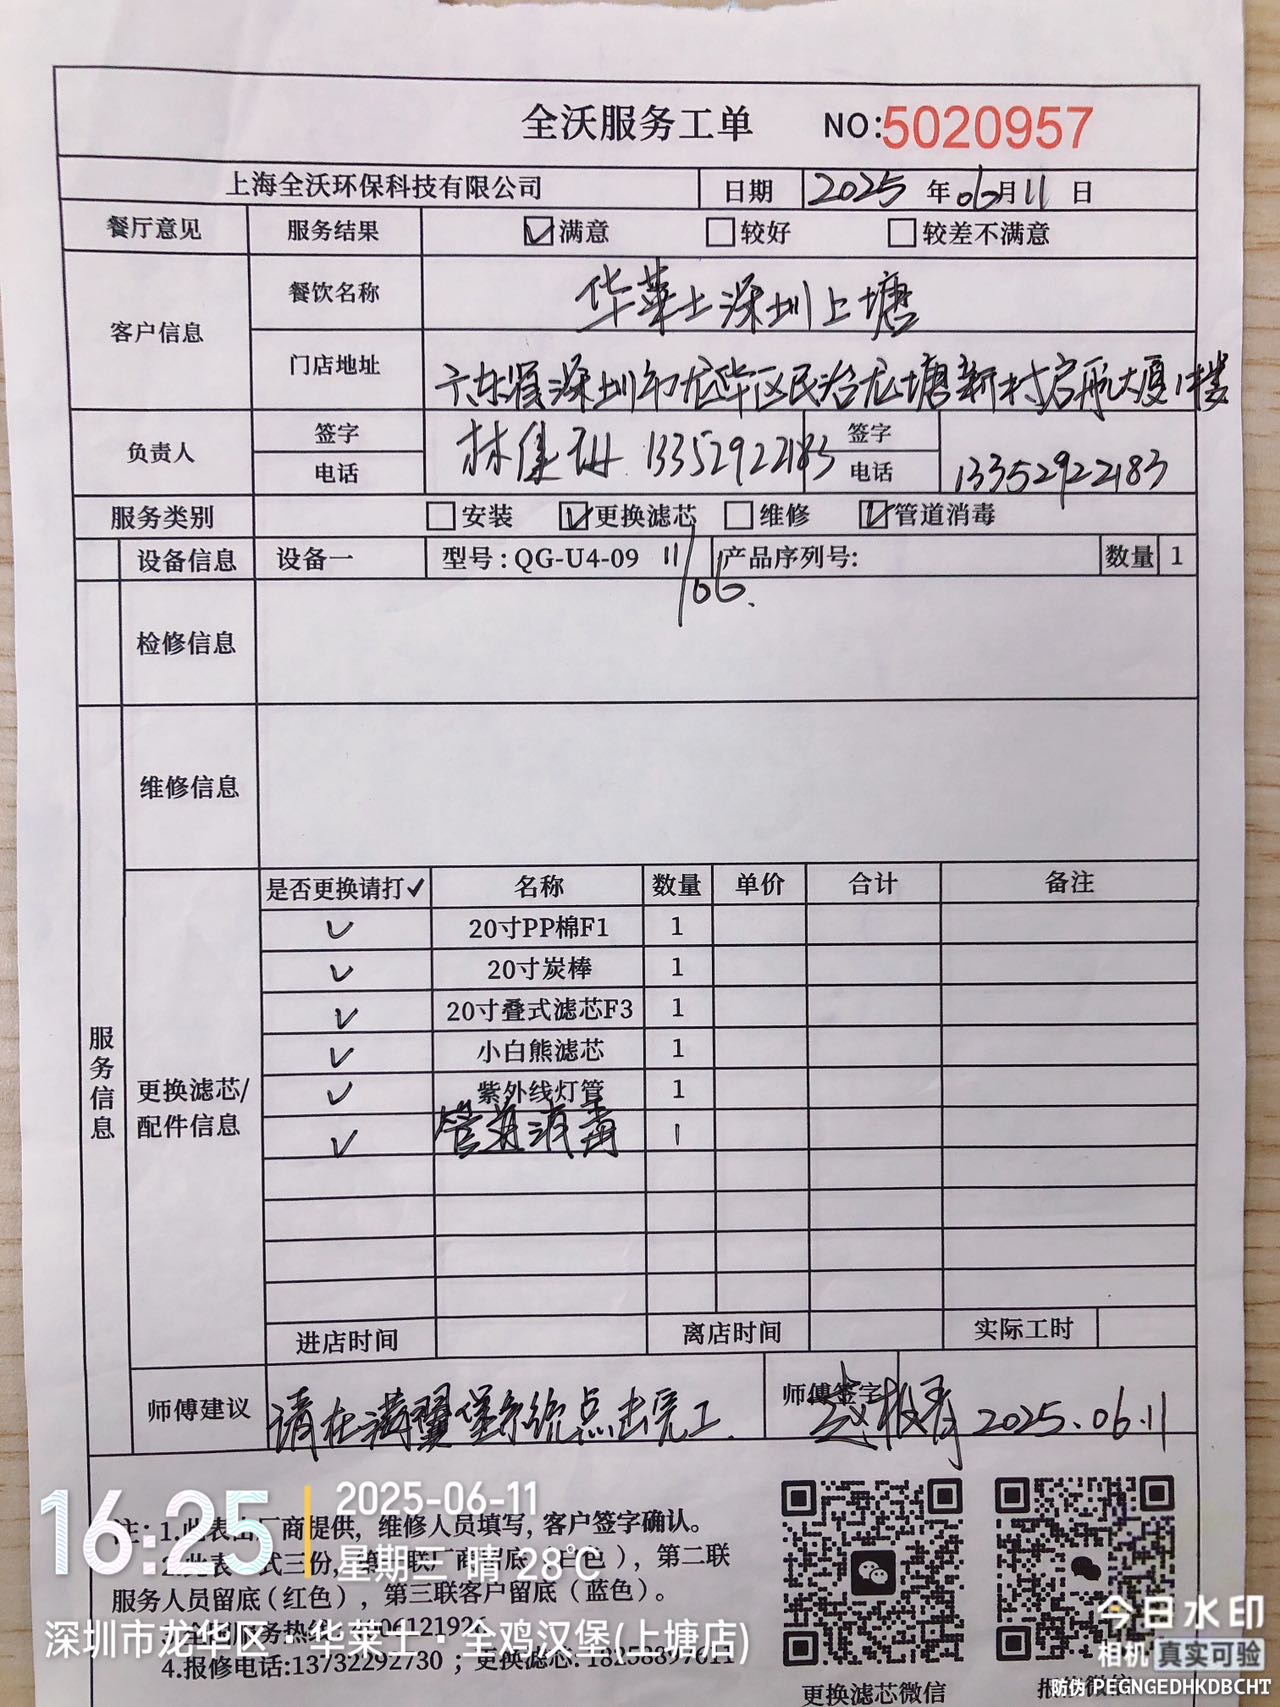 全沃服务工单 NO:5020957
上海全沃环保科技有限公司 日期 2025 年 06 月 11 日
餐厅意见 服务结果 ☑满意 ☐较好 ☐较差不满意
客户信息 餐饮名称 华莱士深圳上塘
门店地址 广东省深圳市龙华区民治龙塘新村启航大厦1楼
负责人 签字 林佳 13352922183 签字
电话 电话 13352922183
服务类别 ☐安装 ☑更换滤芯 ☐维修 ☑管道消毒
设备信息 设备一 型号:QG-U4-09 11/06. 产品序列号: 数量 1
检修信息
维修信息
服务信息
更换滤芯/
配件信息
是否更换请打✓ 名称 数量 单价 合计 备注
✓ 20寸PP棉F1 1
✓ 20寸炭棒 1
✓ 20寸叠式滤芯F3 1
✓ 小白熊滤芯 1
✓ 紫外线灯管 1
✓ 管道消毒 1
进店时间 离店时间 实际工时
师傅建议 请在满翼堡系统点击完工. 师傅签字 2025.06.11
注: 1.此表由厂商提供, 维修人员填写, 客户签字确认。
2.此表一式三份, 第一联厂商留底(白色), 第二联
服务人员留底(红色), 第三联客户留底(蓝色)。
4.报修电话:13732292730 ; 更换滤芯:
更换滤芯微信
16:25
2025-06-11
星期三 晴 28℃
深圳市龙华区·华莱士·全鸡汉堡(上塘店)
今日水印
相机 真实可验
防伪 PEGNGEDHKDBCHT